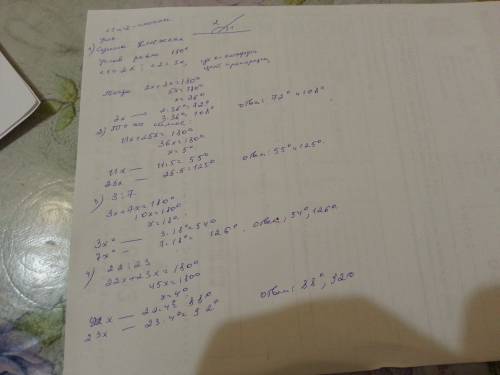 2 1
1) Сумма смежных
углов равна 180°
∠1 = 2x; ∠2 = 3x,
Тогда 2x+3x=180°
5x=180°
x=36°
2x — 2·36°=72°
3·36°=108° Ответ: 72° и 108°
2)
11x+25x=180°
36x=180°
x=5°
11x — 11·5=55°
25x — 25·5=125° Ответ: 55° и 125°
3) 3:7
3x+7x=180°
10x=180°
x=18°
3x° — 3·18°=54°
7x° — 7·18°= 126°. Ответ: 54°, 126°
4) 22:23
22x+23x=180°
45x=180°
x=4°
22x — 22·4=88°
23x — 23·4°=92° Ответ: 88°, 92°